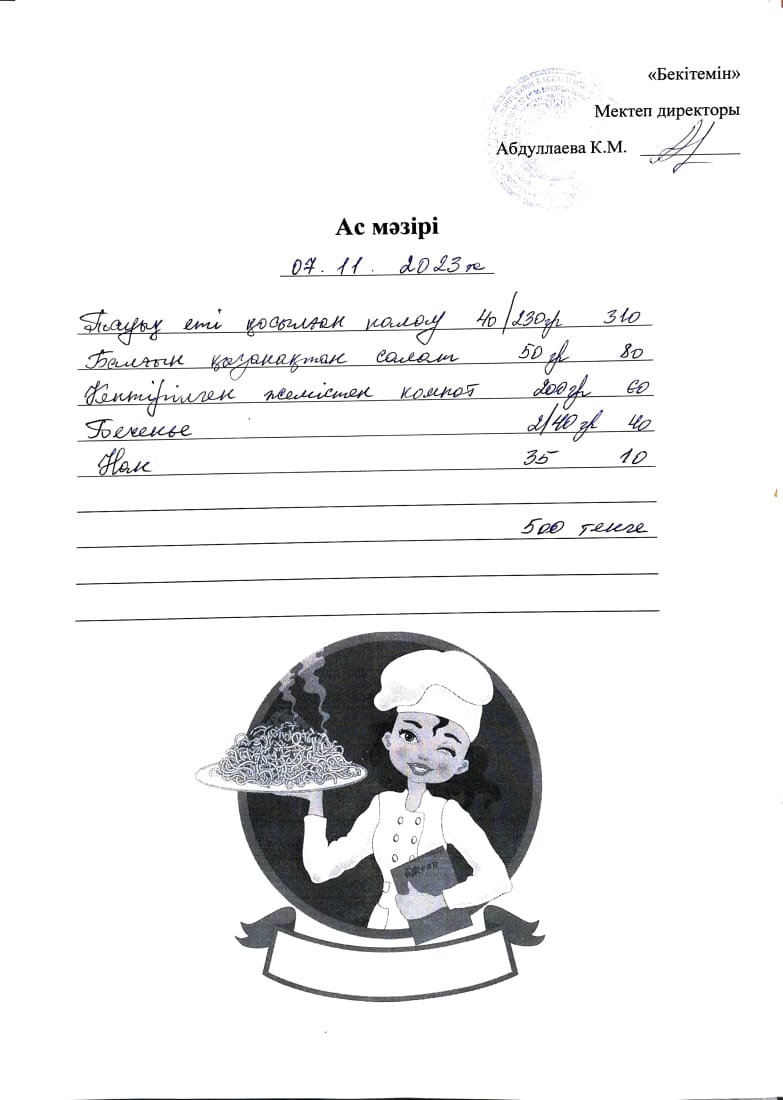 «Бекітемін»
Мектеп директоры
Абдуллаева К.М.
Ас мәзірі
07. 11. 2023 ж
Тауық еті қосылған палау 40/230гр 310
Балғын қызанақтан салат 50 гр 80
Кептірілген жемістен компот 200гр 60
Печенье 2/40 гр 40
Нан 35 10
500 тенге